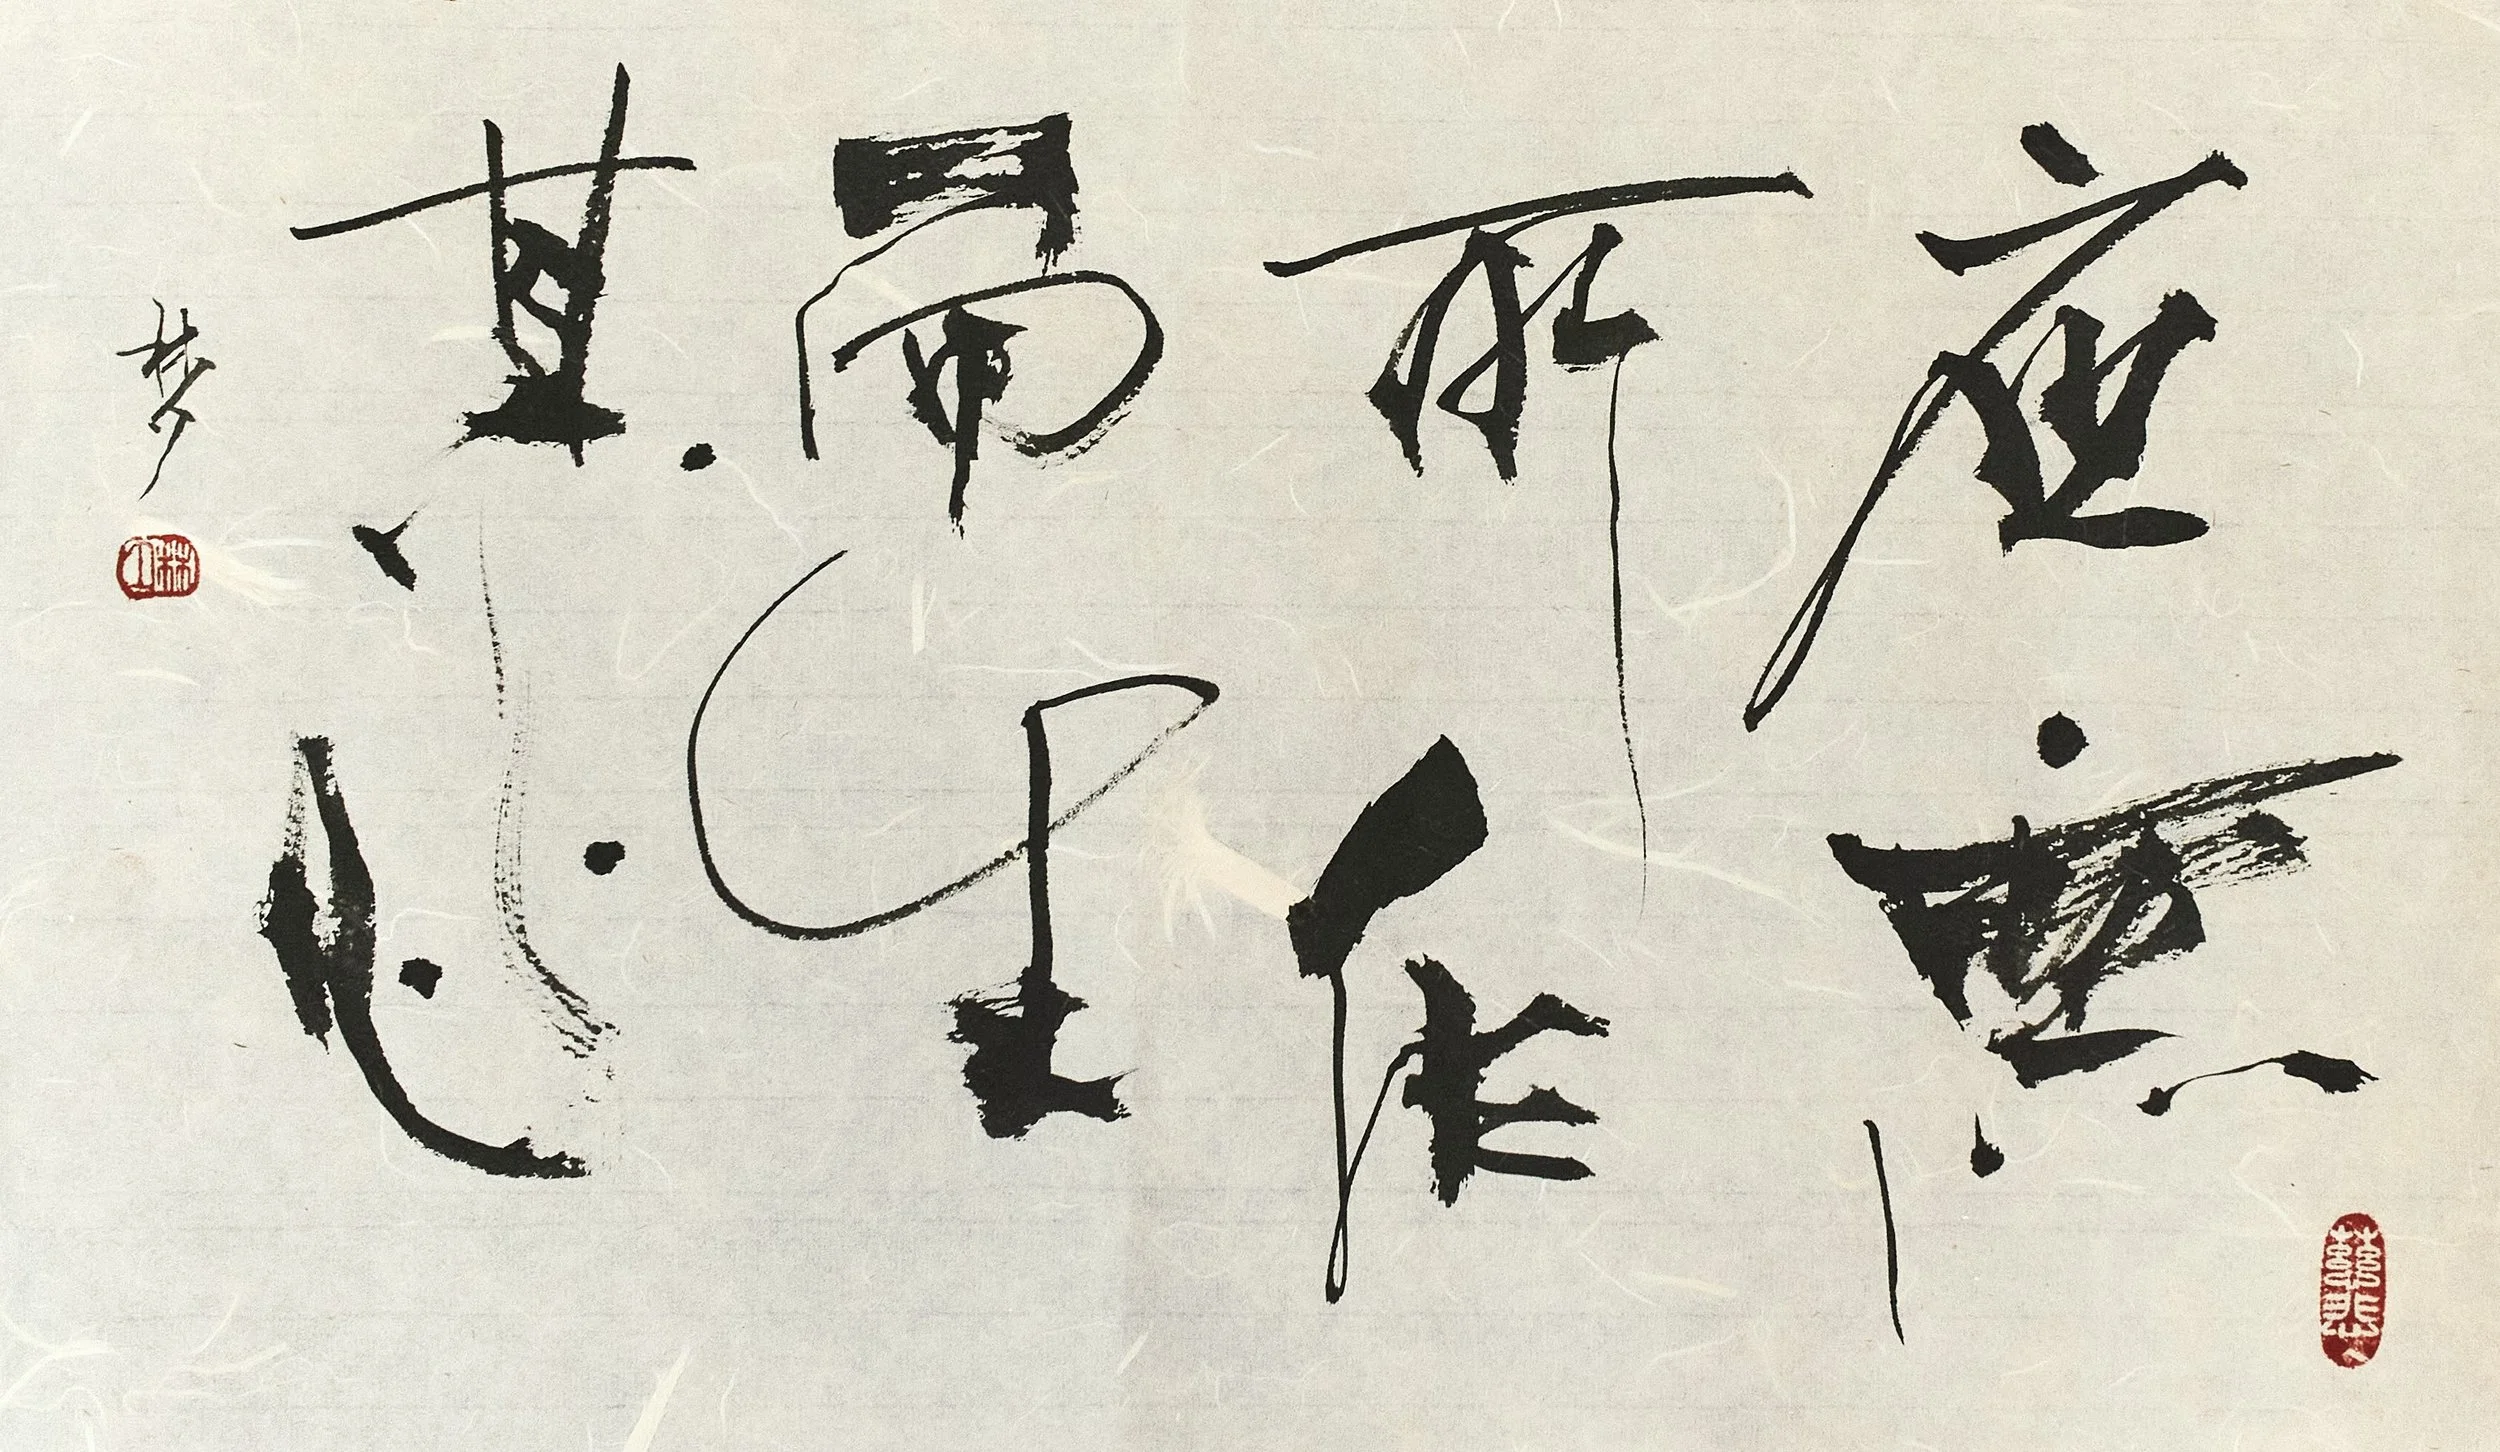 應無
所住
而生
其心
梦